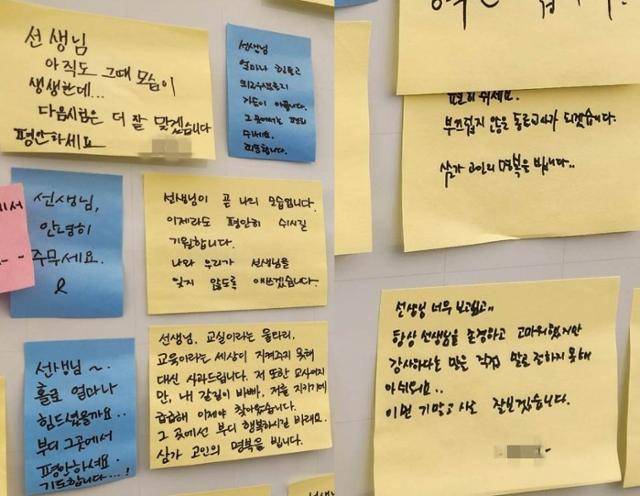 선생님
아직도 그때 모습이
생생한데...
다음시험은 더 잘 맞겠습니다
평안하세요
선생님
얼마나 힘들고
가슴이 아픕니다.
그곳에서는 편히
쉬세요.
선생님,
안녕히
주무세요.
선생님이 곧 나의 모습입니다.
이제라도 평안히 쉬시길
기원합니다.
나와 우리가 선생님을
잊지 않도록 애쓰겠습니다.
선생님~
홀로 얼마나
힘드셨을까요..
부디 그곳에서
평안하셔요.
기도합니다...!
선생님, 교실이라는 울타리,
교육이라는 세상이 지켜주지 못해
대신 사과드립니다. 저 또한 교사이지
만, 내 갈길이 바빠, 저를 지키기에
급급해 이제야 찾아왔습니다.
그 곳에선 부디 행복하시길 바래요.
삼가 고인의 명복을 빕니다.
편히 쉬세요.
부끄럽지 않을 동료교사가 되겠습니다
삼가 고인의 명복을 빕니다..
선생님 너무 보고싶고
항상 선생님을 존경하고 고마워했지만
감사하다는 말은 직접 말로 전하지 못해
아쉬워요..
이번 기말고사는 잘보겠습니다.
선생님